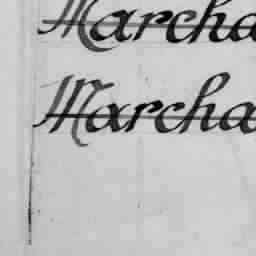 Marcha
Marcha